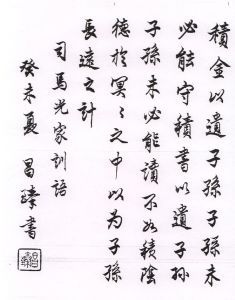 積金以遺子孫子孫未
必能守積書以遺子孙
子孫未必能讀不如積陰
德於冥々之中以為子孫
長遠之計
司馬光家訓語
癸未夏 昌 書